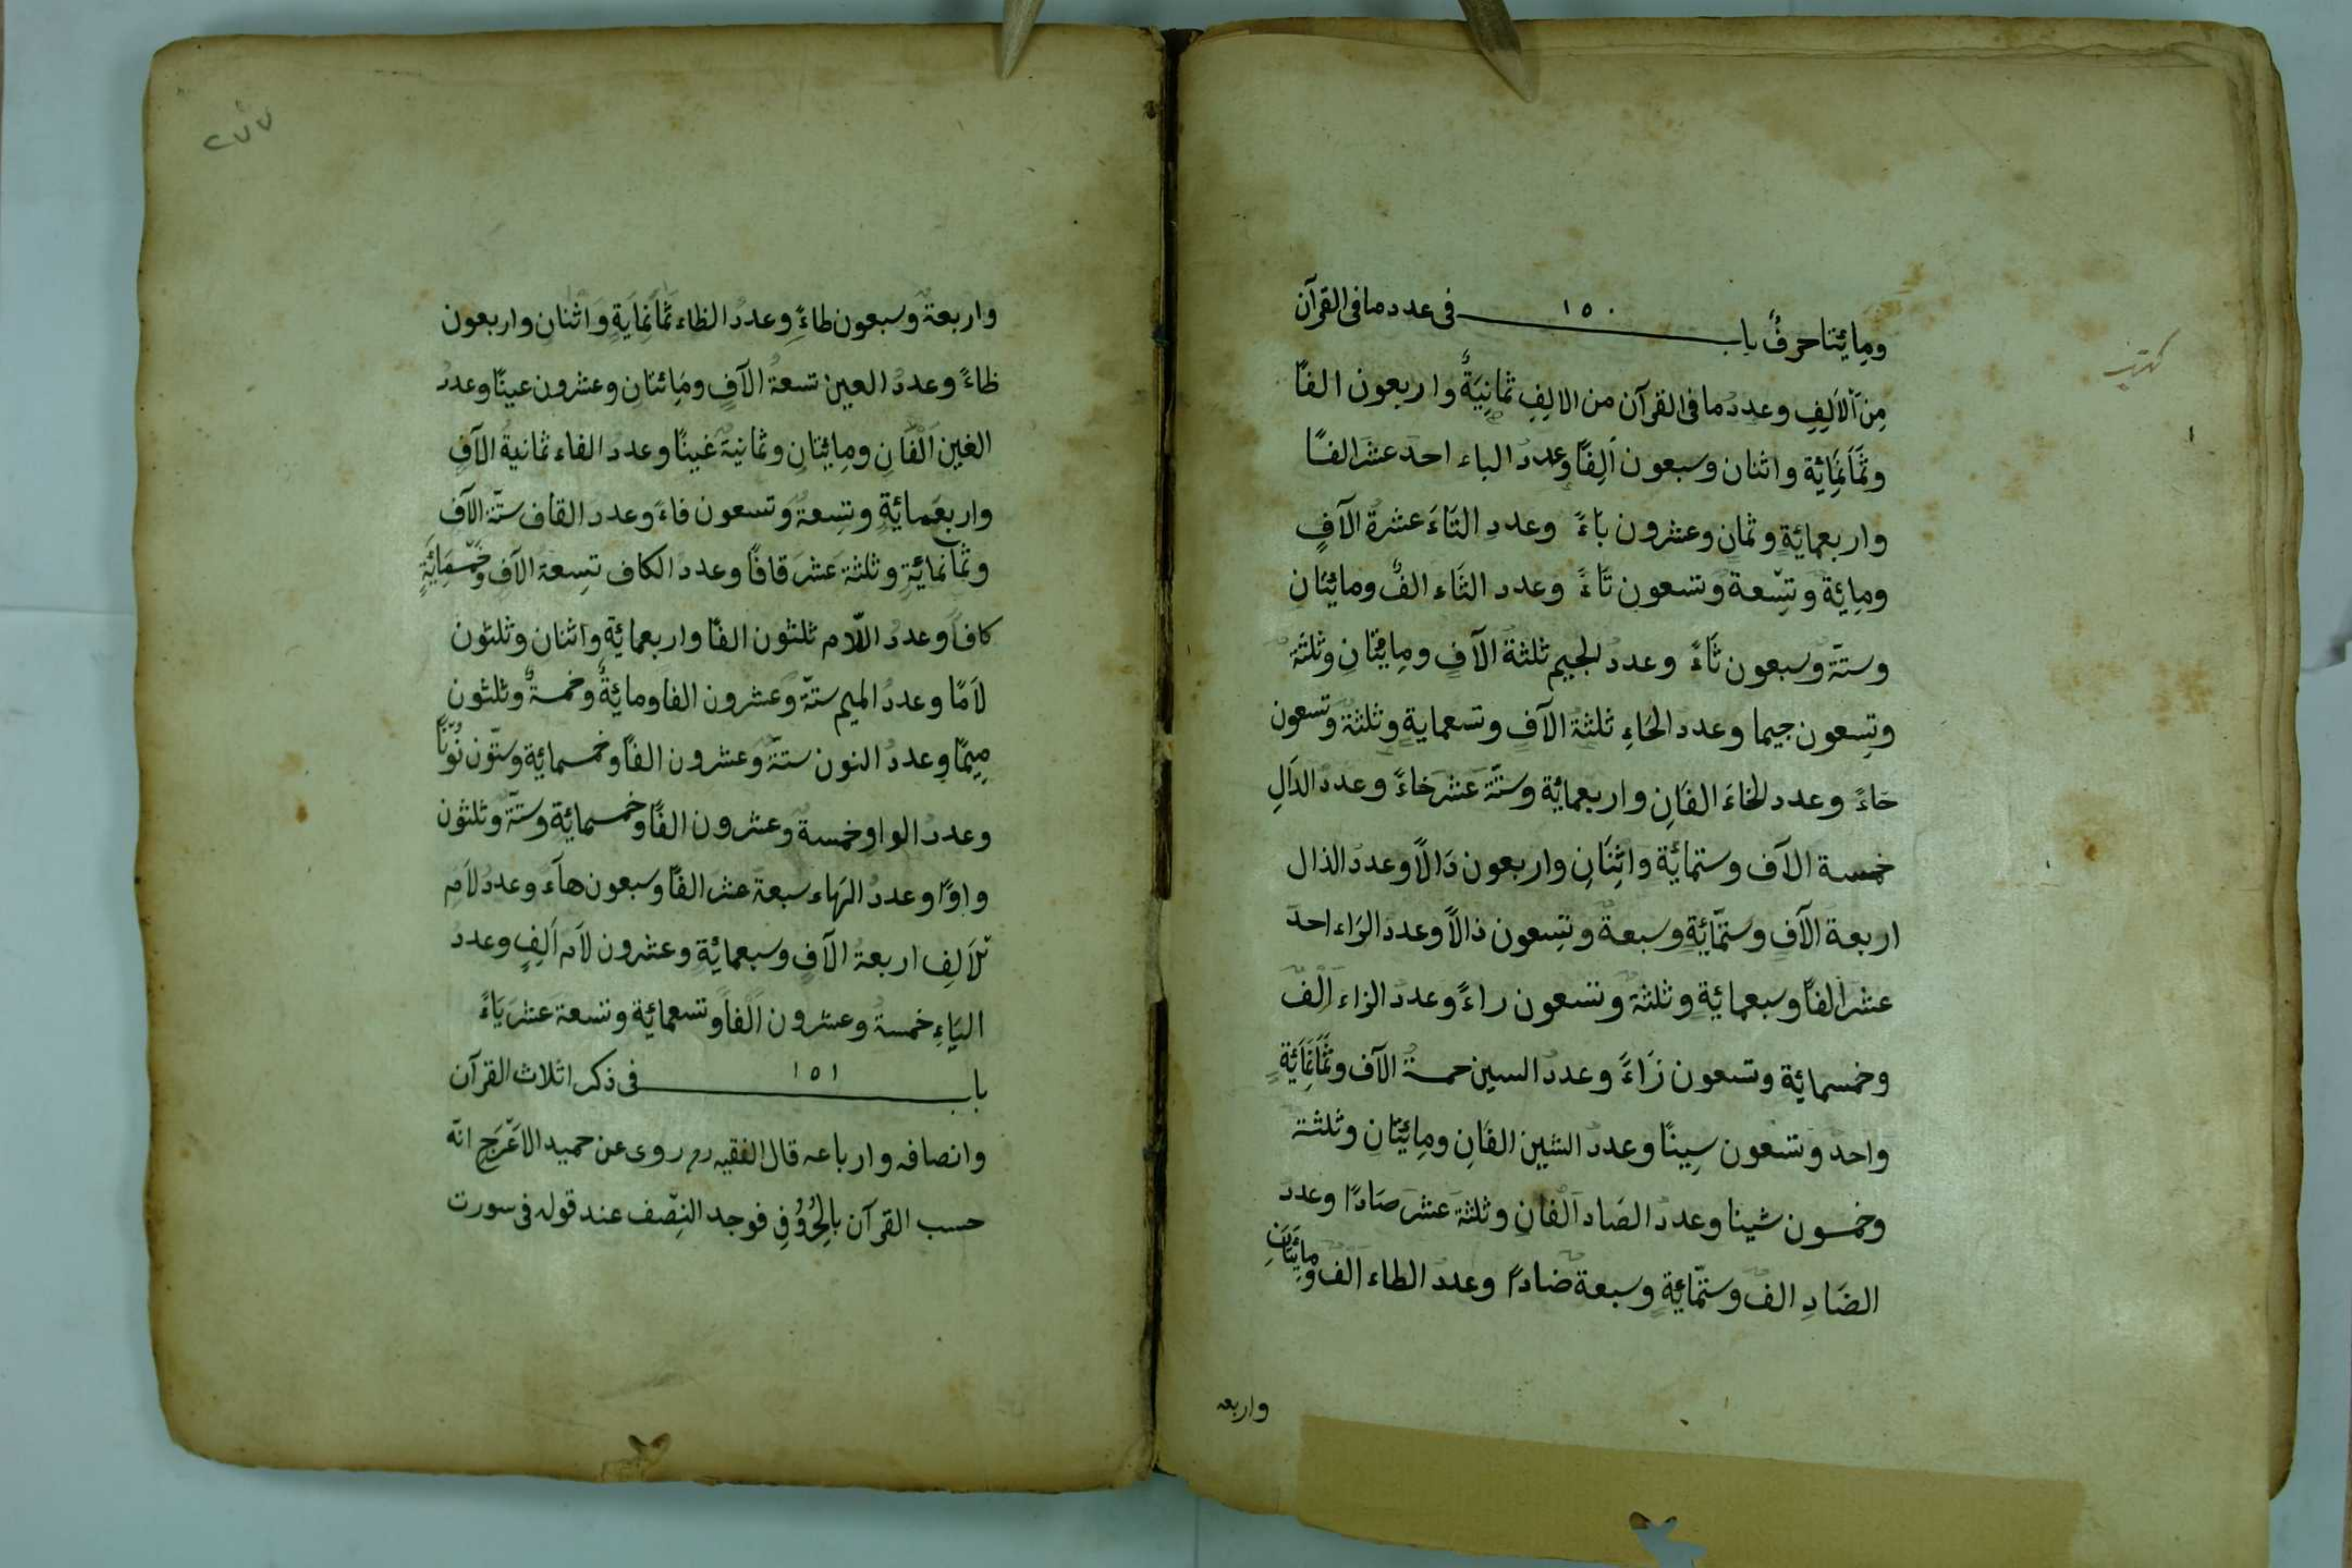 ومِايئتا حرفٌ باب ١٥٠ فى عدد ما فى القرآن
مِنَ اْلاَلِفِ وعددُ ما فى القرآن من الالِفِ ثمانِيَةٌ واربعون الفًا
وثَمَانَمِائة واثنان وسبعون اَلِفًا وعدد الباء احد عشر الفًا
واربعمائةٍ وثمانٍ وعشرون باءً وعددِ التَاءَ عشرة الآفٍ
ومِايئة وتِسّعة وتسعون تَاءً وعدد الثَاء الفٌ ومايئتان
وستّة وسبعون ثَاءً وعددُ الجيم ثلثة الآفٍ ومِايئتانِ وثلثةُ
وتِسعون جيما وعدد الحَاءِ ثلثة الآفٍ وتسعمايةٍ وثلثةٌ وتسعون
حَاءً وعدد الخاءَ الفَانِ واربعمائة وستّة عَشرَ خاءً وعددُ الدَالِ
خمسة الآف وستمائة واثِنَانِ واربعون دَالًا وعددُ الذال
اربعة الآفٍ وستّمائةٍ وسبعةٌ وتِسعون ذالاً وعدد الرَاء احدَ
عشرَ الفًا وسبعمائةٍ وثلثة وتسعون راءً وعدد الزاء اَلْفٌ
وخمسمائة وتسعون زَاءً وعددُ السين خمسةُ الآف وثَمَانَمَائةٍ
واحد وتسعون سِينًا وعدد الشين الفَانِ ومِايئتَانِ وثلثة
وخمسون شينا وعددُ الصَاد اَلْفانِ وثلثة عشرَ صَادًا وعدد
الضَادِ الفٌ وستّمائةٍ وسبعةٌ ضادًا وعدد الطاء الفٌ ومايئتانِ
واربعه
٢٧٧
واربعة وسبعون طاءً وعددُ الظاء ثَمَانَمِايَةٍ وَاثْنانِ واربعون
ظاءً وعددُ العين تسعةُ الآفٍ ومَائتانِ وعشرون عينًا وعددُ
الغين اَلْفَانِ ومِايئتانِ وثمانيَة غينًا وعدد الفاء ثمانيةُ الآفٍ
واربعَمائيَةٍ وتِسعةٌ وتسعون فاءً وعدد القاف ستّة الآف
وثمانمائيةٍ وثلثة عَشَرَ قافًا وعددُ الكاف تِسعة الآفٍ وخَمْسمِايَةٍ
كافاً وعددُ اللّام ثلثون الفًا واربعمائيةٍ واثنان وثلثون
لاَمًا وعددُ الميم ستّة وعشرون الفا ومايئةٌ وخمسةٌ وثلثون
مِيمًا وعددُ النون ستّةٌ وعشرون الفًا وخمسمائية وستّون نُوّنًا
وعدد الواو خمسة وعشرون الفًا وخمسمائية وستّةٌ وثلثون
واوًا وعددُ الهَاء سبعة عشر الفًا وسبعون هآءً وعددُ لاَم
تْلاَلِف اربعة الآفٍ وسبعمائيةٍ وعشرون لاَم اَلِفٍ وعدد
اليَاءِ خمسةٌ وعشرون اَلْفاً وتسعمائية وتسعة عشرَ يَاءً
باب ١٥١ فى ذكر اثلاث القرآن
وانصافه وارباعه قال الفقيه رح روى عن حميد الاَعْرَجِ انّه
حسب القرآن بالحُرُوُفِ فوجد النِصّف عند قوله فى سورت